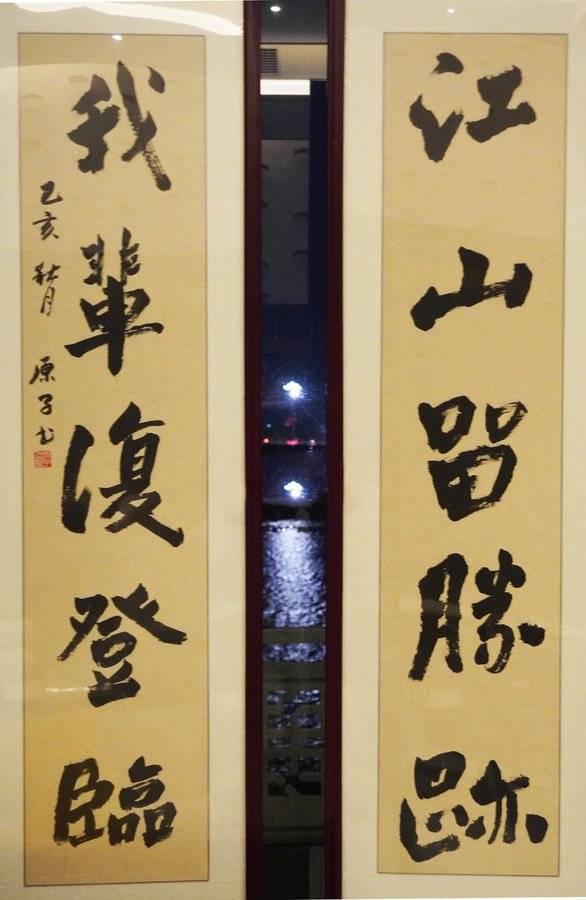 江山留勝跡
我輩復登臨
乙亥秋月 原子书